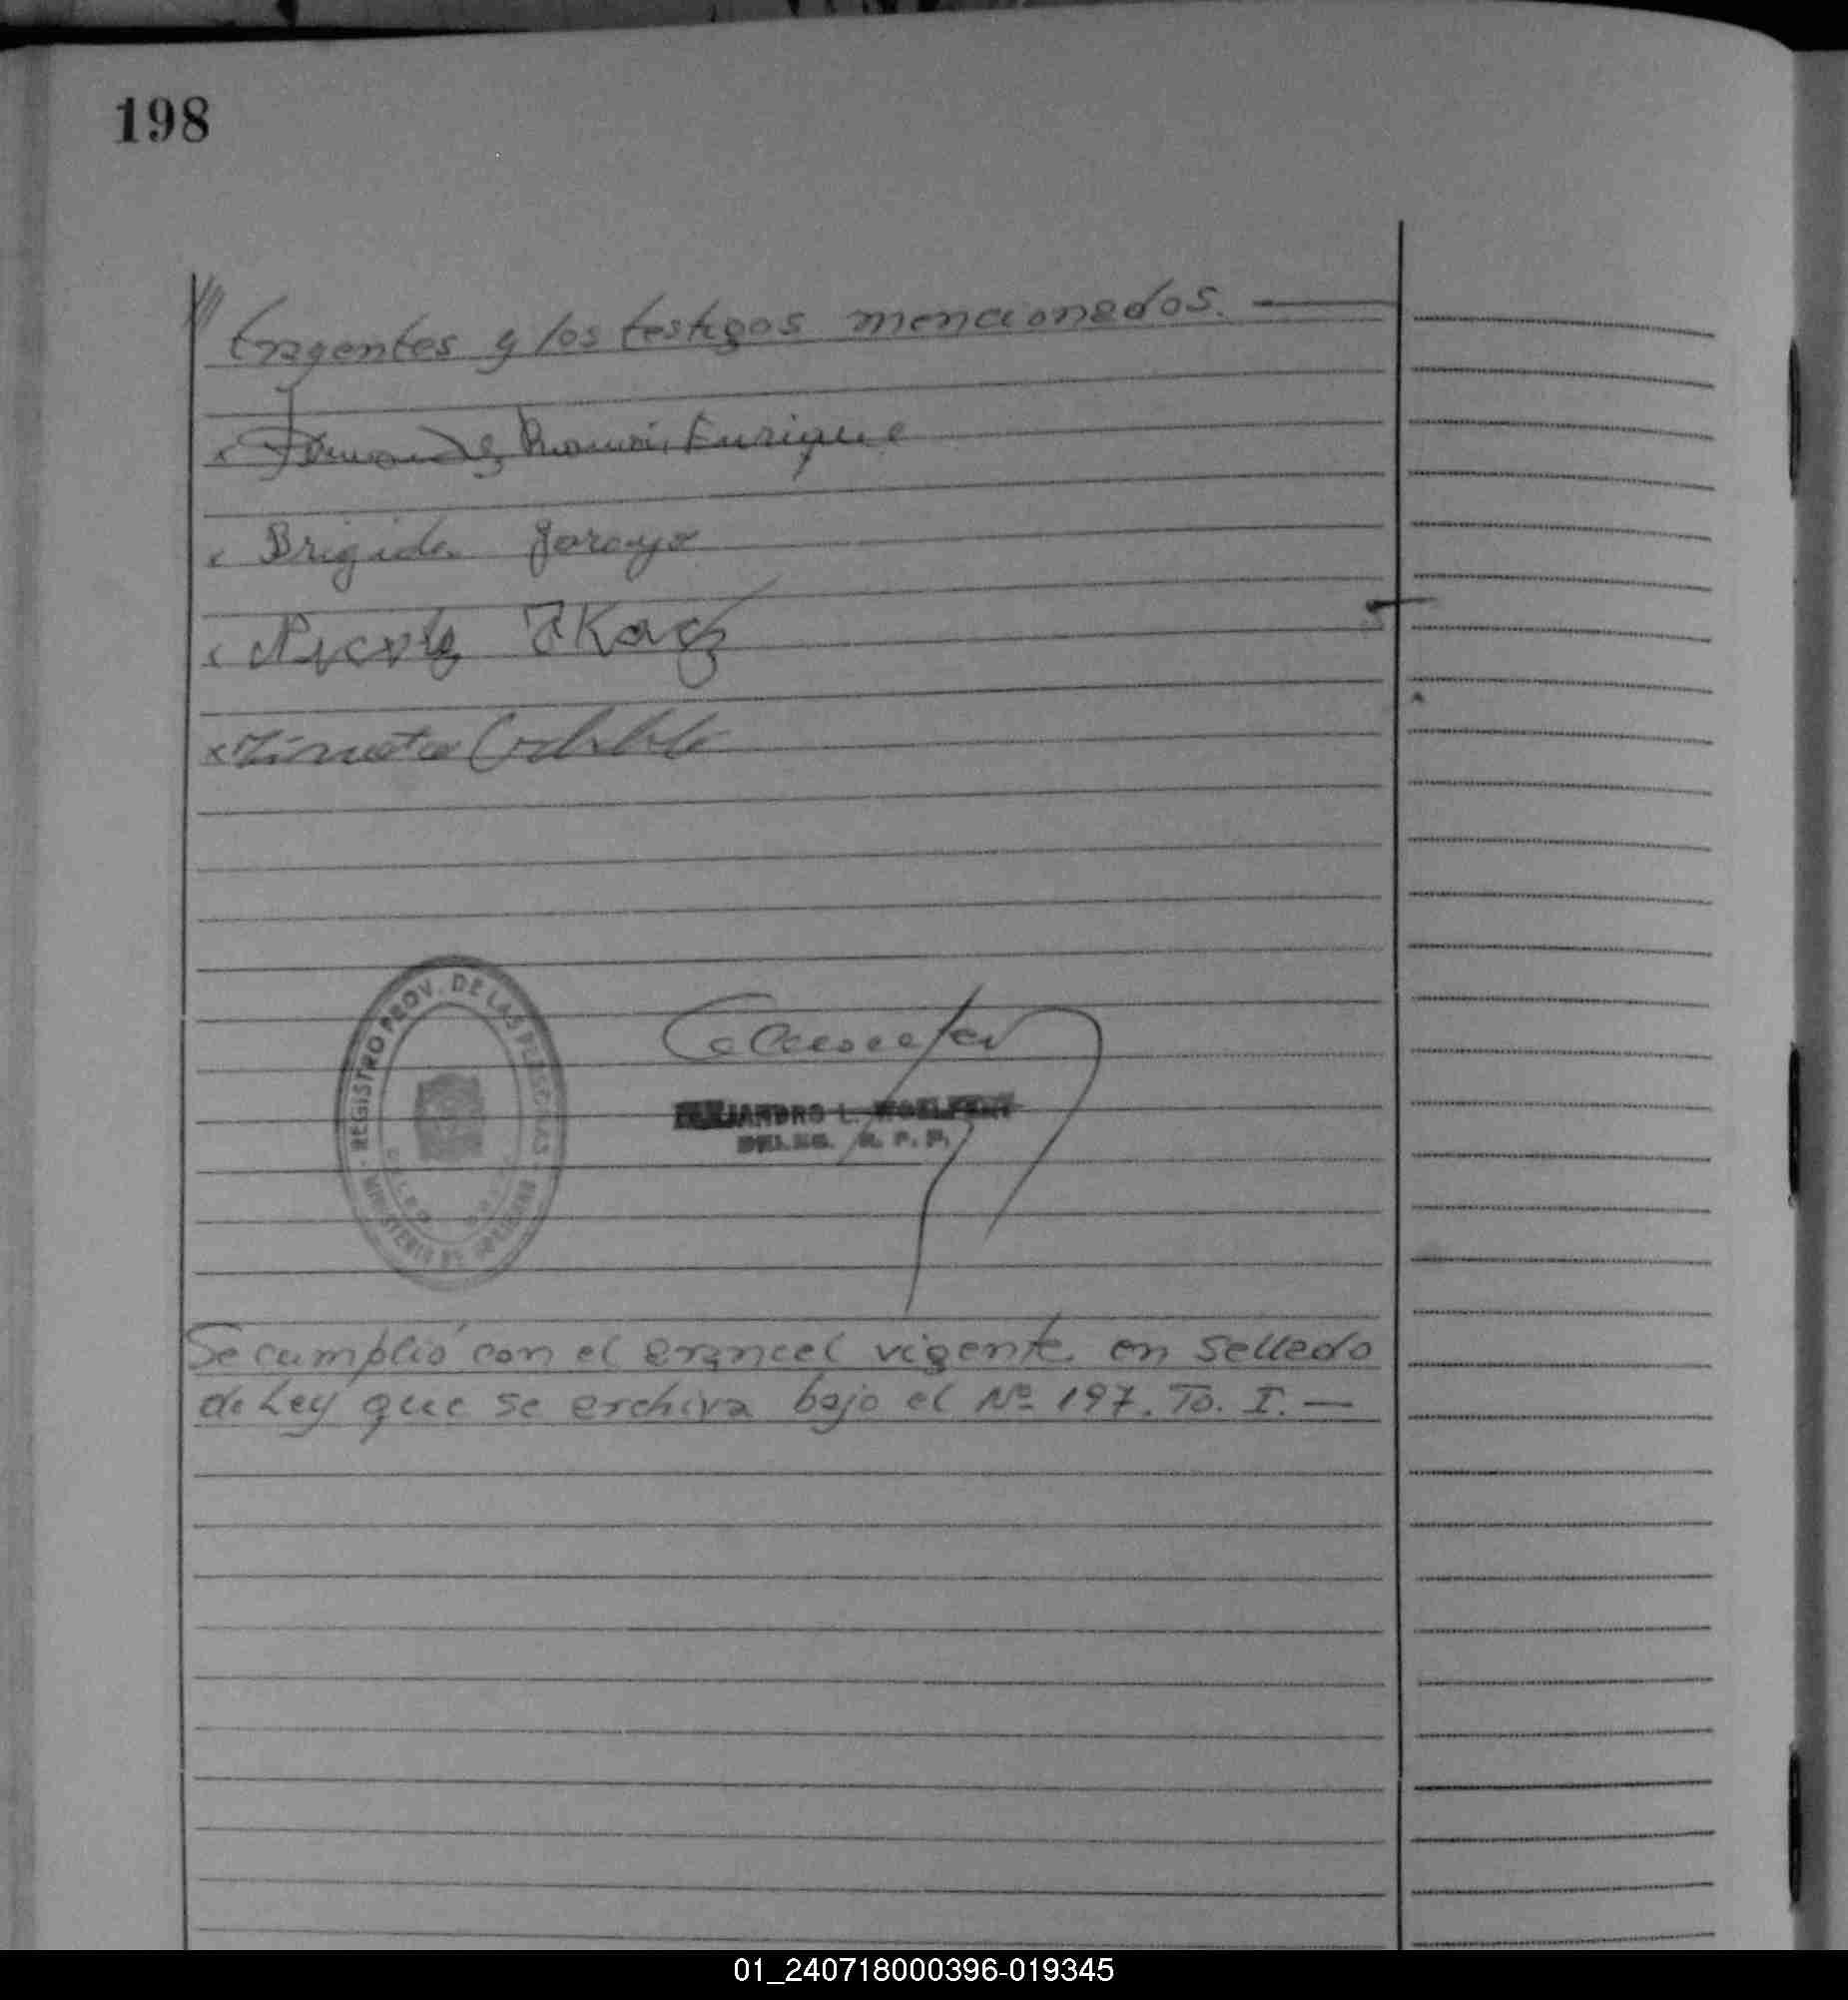 198
/// trayentes y los testigos mencionados. —
x Fernandez Ramón Enrique
x Brigida Garayo
x
x
REGISTRO PROV. DE LAS PERSONAS
MINISTERIO DE GOBIERNO
ALEJANDRO L.
DELEG. R. P. P.
Se cumplió con el arancel vigente en sellado
de Ley que se archiva bajo el Nº 197. To. I. —
01_240718000396-019345